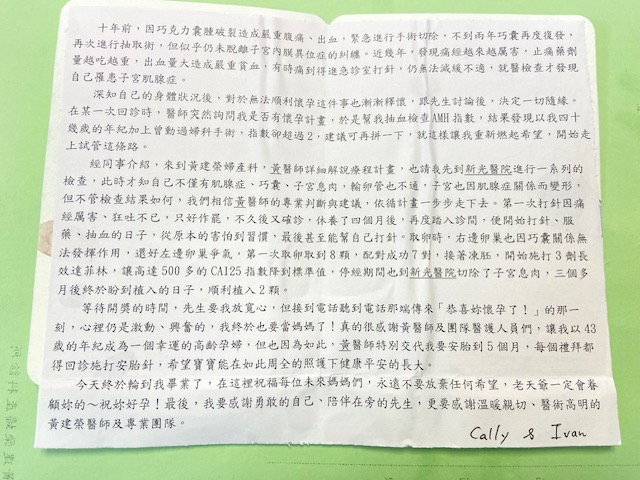 十年前，因巧克力囊腫破裂造成嚴重腹痛、出血，緊急進行手術切除，不到兩年巧囊再度復發，
再次進行抽取術，但似乎仍未脫離子宮內膜異位症的糾纏。近幾年，發現痛經越來越厲害，止痛藥劑
量越吃越重，出血量大造成嚴重貧血，有時痛到得進急診室打針，仍無法減緩不適，就醫檢查才發現
自己罹患子宮肌腺症。
深知自己的身體狀況後，對於無法順利懷孕這件事也漸漸釋懷，跟先生討論後，決定一切隨緣。
在某一次回診時，醫師突然詢問我是否有懷孕計畫，於是幫我抽血檢查AMH指數，結果發現以我四十
幾歲的年紀加上曾動過婦科手術，指數卻超過2，建議可再拼一下，就這樣讓我重新燃起希望，開始走
上試管這條路。
經同事介紹，來到黃建榮婦產科，黃醫師詳細解說療程計畫，也請我先到新光醫院進行一系列的
檢查，此時才知自己不僅有肌腺症、巧囊、子宮息肉，輸卵管也不通，子宮也因肌腺症關係而變形，
但不管檢查結果如何，我們相信黃醫師的專業判斷與建議，依循計畫一步步走下去。第一次打針因痛
經厲害、狂吐不已，只好作罷，不久後又確診，休養了四個月後，再度踏入診間，便開始打針、服
藥、抽血的日子，從原本的害怕到習慣，最後甚至能幫自己打針。取卵時，右邊卵巢也因巧囊關係無
法發揮作用，還好左邊卵巢爭氣，第一次取卵取到8顆，配對成功7對，接著凍胚，開始施打3劑長
效達菲林，讓高達500多的CA125指數降到標準值，停經期間也到新光醫院切除了子宮息肉，三個多
月後終於盼到植入的日子，順利植入2顆。
等待開獎的時間，先生要我放寬心，但接到電話聽到電話那端傳來「恭喜妳懷孕了！」的那一
刻，心裡仍是激動、興奮的，我終於也要當媽媽了！真的很感謝黃醫師及團隊醫護人員們，讓我以43
歲的年紀成為一個幸運的高齡孕婦，但也因為如此，黃醫師特別交代我要安胎到5個月，每個禮拜都
得回診施打安胎針，希望寶寶能在如此周全的照護下健康平安的長大。
今天終於輪到我畢業了，在這裡祝福每位未來媽媽們，永遠不要放棄任何希望，老天爺一定會眷
顧妳的～祝妳好孕！最後，我要感謝勇敢的自己、陪伴在旁的先生，更要感謝溫暖親切、醫術高明的
黃建榮醫師及專業團隊。
Cally & Ivan